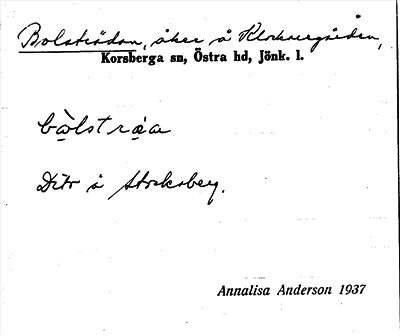 Bolstrådan, åker å Klockaregården,
Korsberga sn, Östra hd, Jönk. l.
bòlstráa
Dito å Stocksberg.
Annalisa Anderson 1937